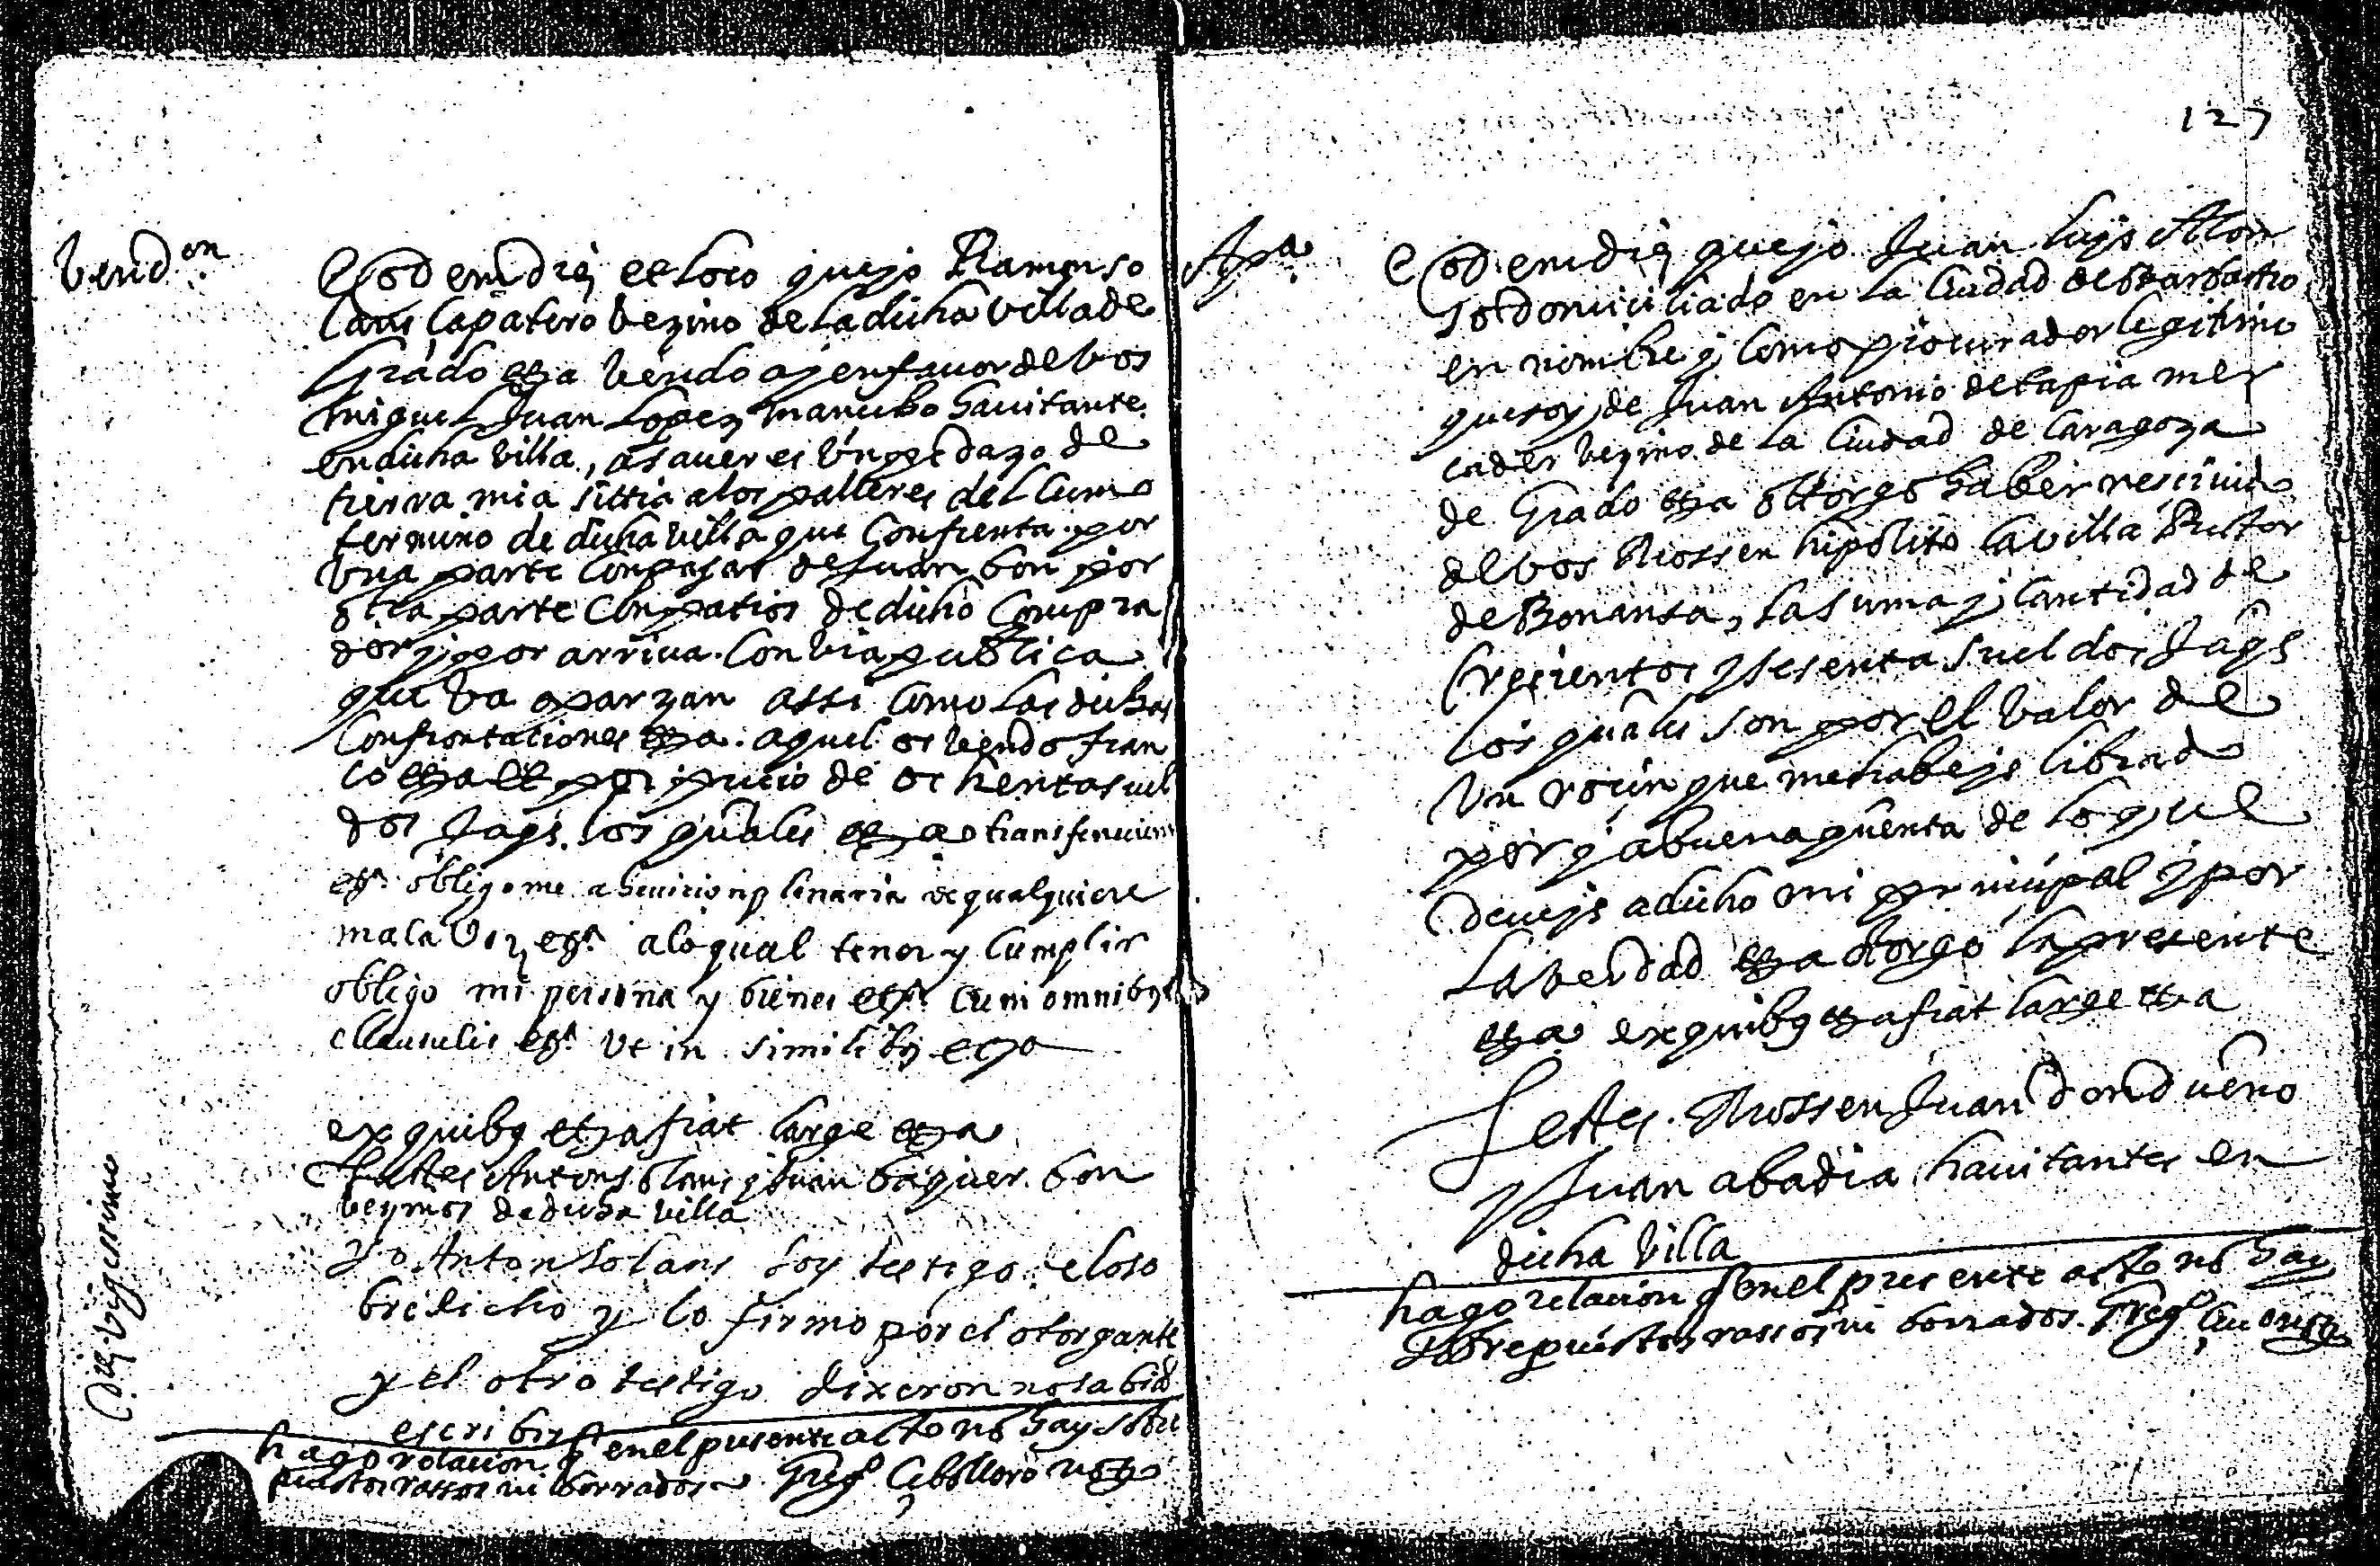 Vendon
Eod em die et loco que yo Ramon so
lans çapatero vezino de la dicha villa de
Grado etza vendo a y en fauor de vos
miguel Juan Lopez mancebo hauitante
en dicha villa, a saver es vn pedazo de
tierra mia sittia a los palleres del
termino de dicha villa que Confrenta por
vna parte Con pajar de Juan bon por
otra parte Con patios de dicho Compra
dor y por arriua Con via publica
que va a parzan assi Como las dichas
Confrontationes etza aquel os vendo fran
co etza et por precio de ochenta suel
dos Jaqs. los quales etza transferiendo
etza obligome a heuiction plenaria de qualquiere
mala voz etza a lo qual tener y Cumplir
obligo mi persona y bienes etza Cum omnibus
clausulis etza vt in similibus etza
ex quibus etza fiat large etza
Testes Anton solans y Juan baquer bon
vezinos de dicha villa
Yo Anton solans soy testigo de lo so
bredicho y lo firmo por el otorgante
y el otro testigo dixeron no sabia
escribir
hago relacion q en el presente acto no hay sobre
puestos rassos ni borrados Gregº Cebollero notº
Die vigessimo
127
Apa
Eodem die que yo Juan luys Alon
so domiciliado en la Ciudad de Barbastro
en nombre y Como procurador legitimo
que soy de Juan Antonio de tapia mer
cader vezino de la Ciudad de Caragoza
de Grado etza ottorgo haber rescivido
de vos Mossen hipolito lavilla Rector
de Bonansa, la suma y Cantidad de
trecientos y sesenta sueldos Jaqs
los quales son por el valor de
vn rocin que me habeys librado
por y a buena quenta de lo que
deueys a dicho mi principal y por
la verdad etza otorgo la presente
etza ex quibus etza fiat large etza
Testes Mossen Juan
y Juan abadia hauitantes en
dicha villa
hago relacion q en el presente acto no hay
sobrepuestos rassos ni borrados. Gregº